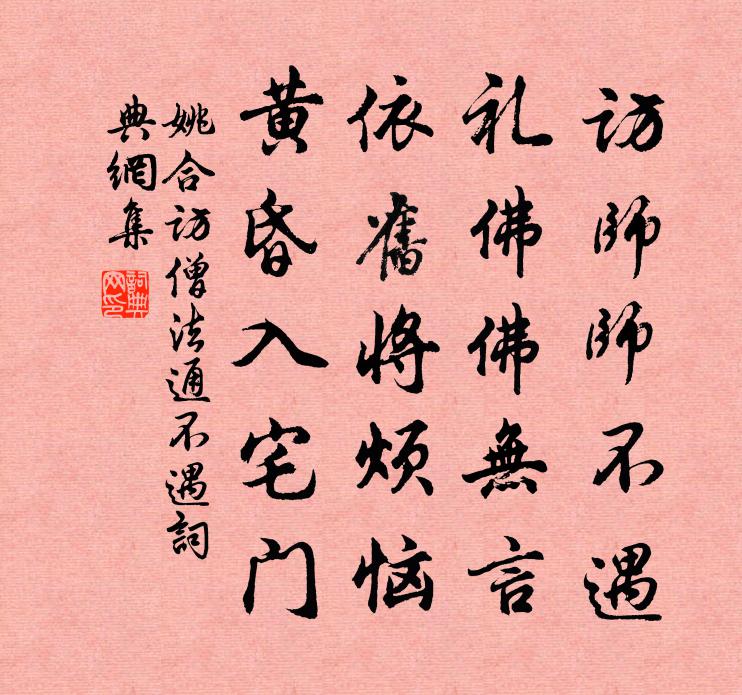 访師師不遇
礼佛佛無言
依舊將烦恼
黄昏入宅门
姚合访僧法通不遇詞
典網集
詞典网印